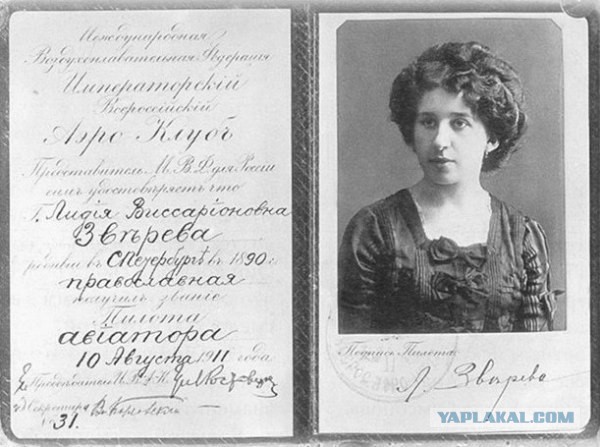 Международная
Воздухоплавательная Федерація
Императорскій
Всероссійскій
Аэро Клубъ
Представитель М. В. Ф. для Россіи
симъ удостовѣряетъ что
Г. Лидія Виссаріоновна
Звѣрева
родивш въ СПетербургѣ въ 1890 г.
православная
получилъ званіе
Пилота
авіатора
10 Августа 1911 года
Предсѣдатель И. В. А. К.
Секретарь
№ 31.
Подпись Пилота:
Л. Звѣрева
YAPLAKAL.COM